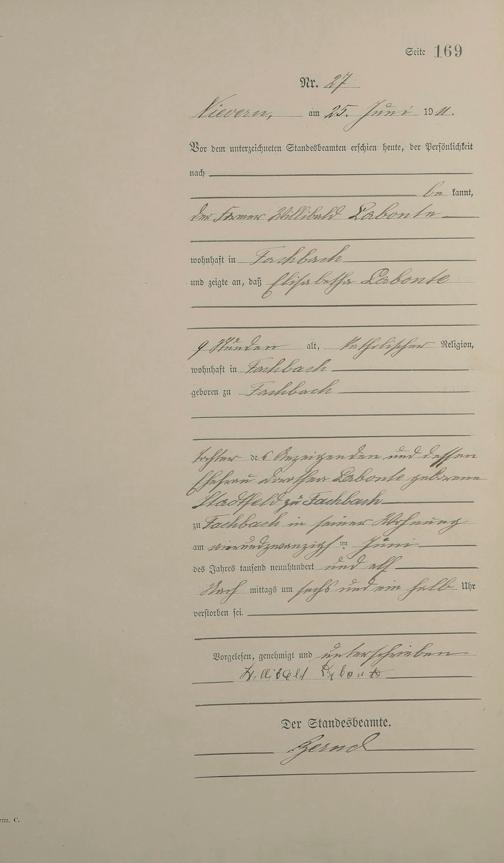 Seite 169
Nr. 27
Nievern, am 25. Juni 1911.
Vor dem unterzeichneten Standesbeamten erschien heute, der Persönlichkeit
nach
be kannt,
der Former Willibald Labonte
wohnhaft in Fachbach
und zeigte an, daß Elisabetha Labonte
9 Stunden alt, katholischer Religion,
wohnhaft in Fachbach
geboren zu Fachbach
Tochter des Anzeigenden und dessen
Ehefrau Dorothea Labonte geborene
Stadtfeld zu Fachbach
zu Fachbach in seiner Wohnung
am vierundzwanzigsten Juni
des Jahres tausend neunhundert und elf
Nach mittags um sechs und ein halb Uhr
verstorben sei.
Vorgelesen, genehmigt und unterschrieben
Willibald Labonte
Der Standesbeamte.
C.